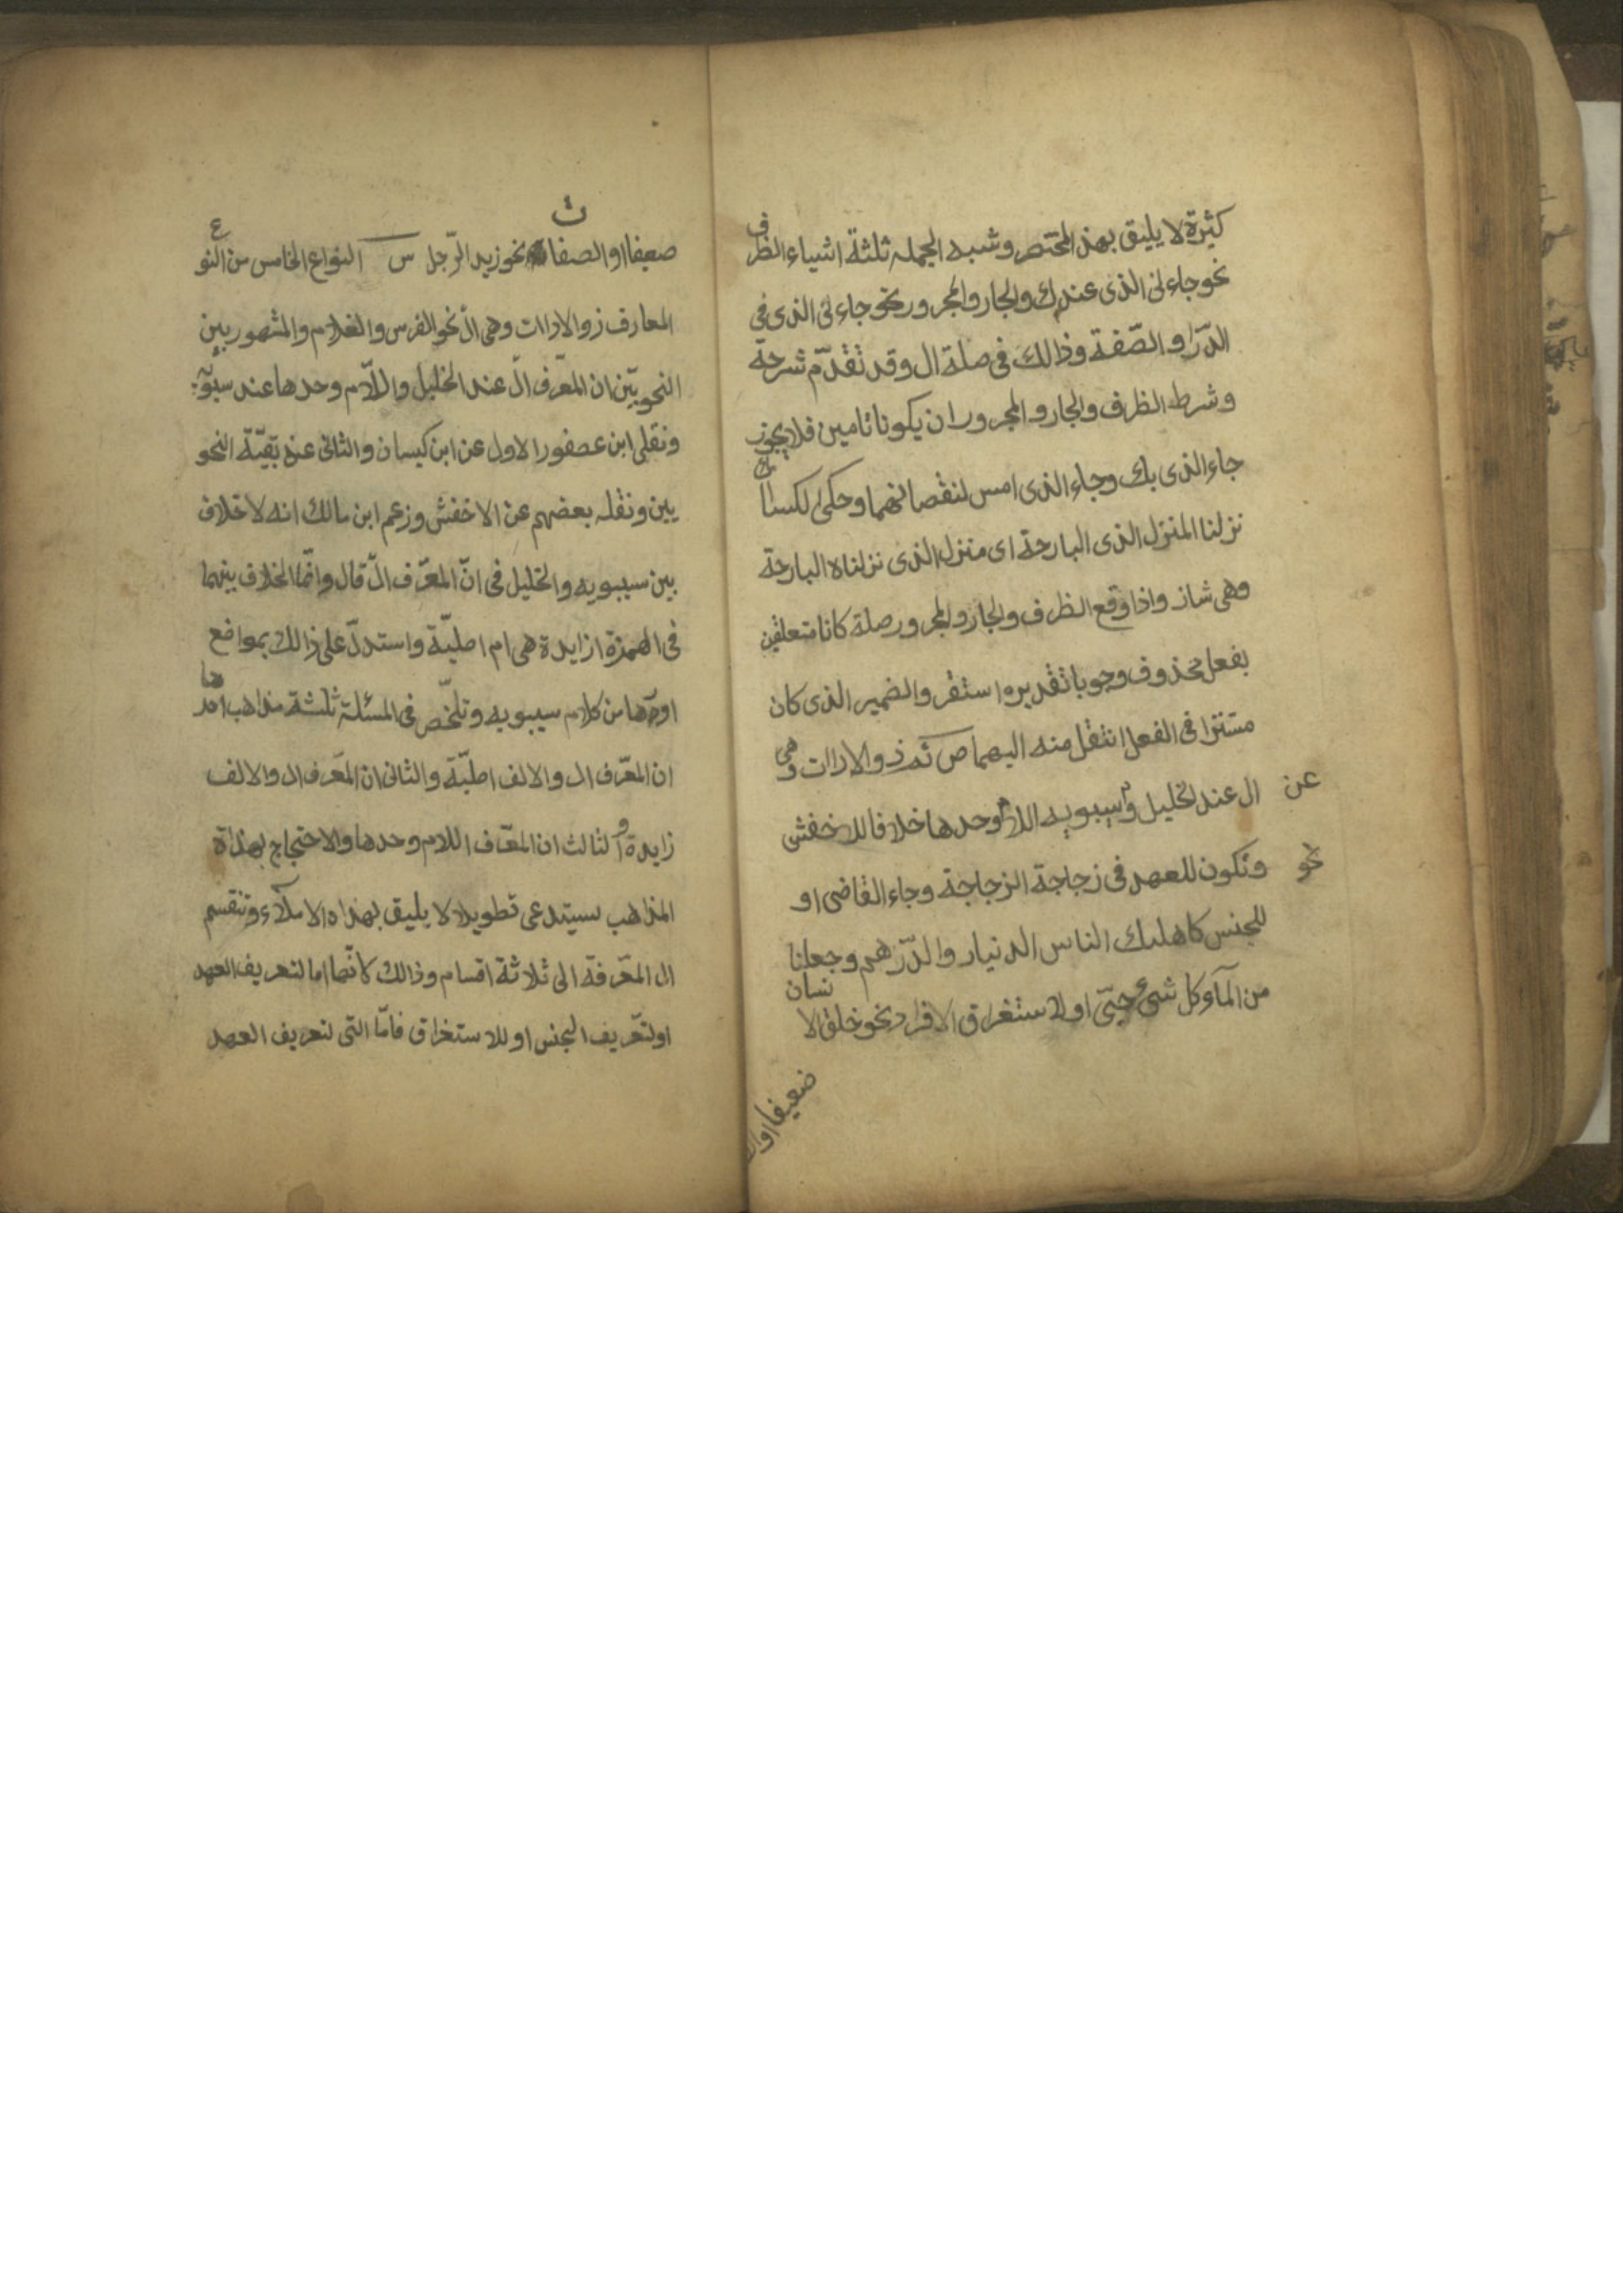 كثيرة لا يليق بهذ المختصر وشبه الجمله ثلثة اشياء الظرف
نحو جاءنى الذى عندك والجار والمجرور نحو جاءنى الذى فى
الدّر او الصّفة وذالك فى صلة ال وقد تقدّم شرحة
وشرط الظرف والجار والمجرور ان يكونا تامين فلا يجوز
جاء الذى بك وجاء الذى امس لنقصانهما وحكى الكسائ
نزلنا المنزل الذى البارحة اى منزل الذى نزلناه البارحة
وهى شاذ واذا وقع الظرف والجار والمجرور صلة كانا متعلقين
بفعل محذوف وجوبا تقديره استقر والضمير الذى كان
مستترا فى الفعل انتقل منه اليهما ص ثم ذو الادات وهى
ال عند الخليل وسيبويه اللام وحدها خلافا للاخفش
عن
وتكون للعهد فى زجاجة الزجاجة وجاء القاضى او
نحو
للجنس كاهلك الناس الدنيار والدّرهم وجعلنا
من المآ وكل شىء حىّ او لاستغراق الافراد نحو خلق الانسان
ضعيفا او
ضعيفا او الصفات نحو زيد الرّجل س النواع الخامس من النوع
المعارف ذو الادات وهى ال نحو الفرس والغلام والمشهور بين
النحويّين ان المعرّف ال عند الخليل واللّام وحدها عند سيبويه
ونقلى ابن عصفور الاول عن ابن كيسان والثانى عن بقيّة النحو
يين ونقله بعضهم عن الاخفش وزعم ابن مالك انه لا خلاف
بين سيبويه والخليل فى انّ المعرّف ال قال وانّما الخلاف بينهما
فى الهمزة ازايدة هى ام اصليّة واستدلّ على ذالك بمواضع
اوردها من كلام سيبويه وتلخّص فى المسئلة ثلثة مذاهب احدها
ان المعرّف ال والالف اصليّة والثانى ان المعرف ال والالف
زايدة والثالث ان المعرّف اللام وحدها والاحتجاج بهذاة
المذاهب يستدعى تطويلا لا يليق بهذاه الاملآء وتنقسم
ال المعّرفة الى ثلاثة اقسام وذالك لانّها اما لتعريف العهد
او لتعّريف الجنس او للاستغراق فامّا التى لتعريف العهد